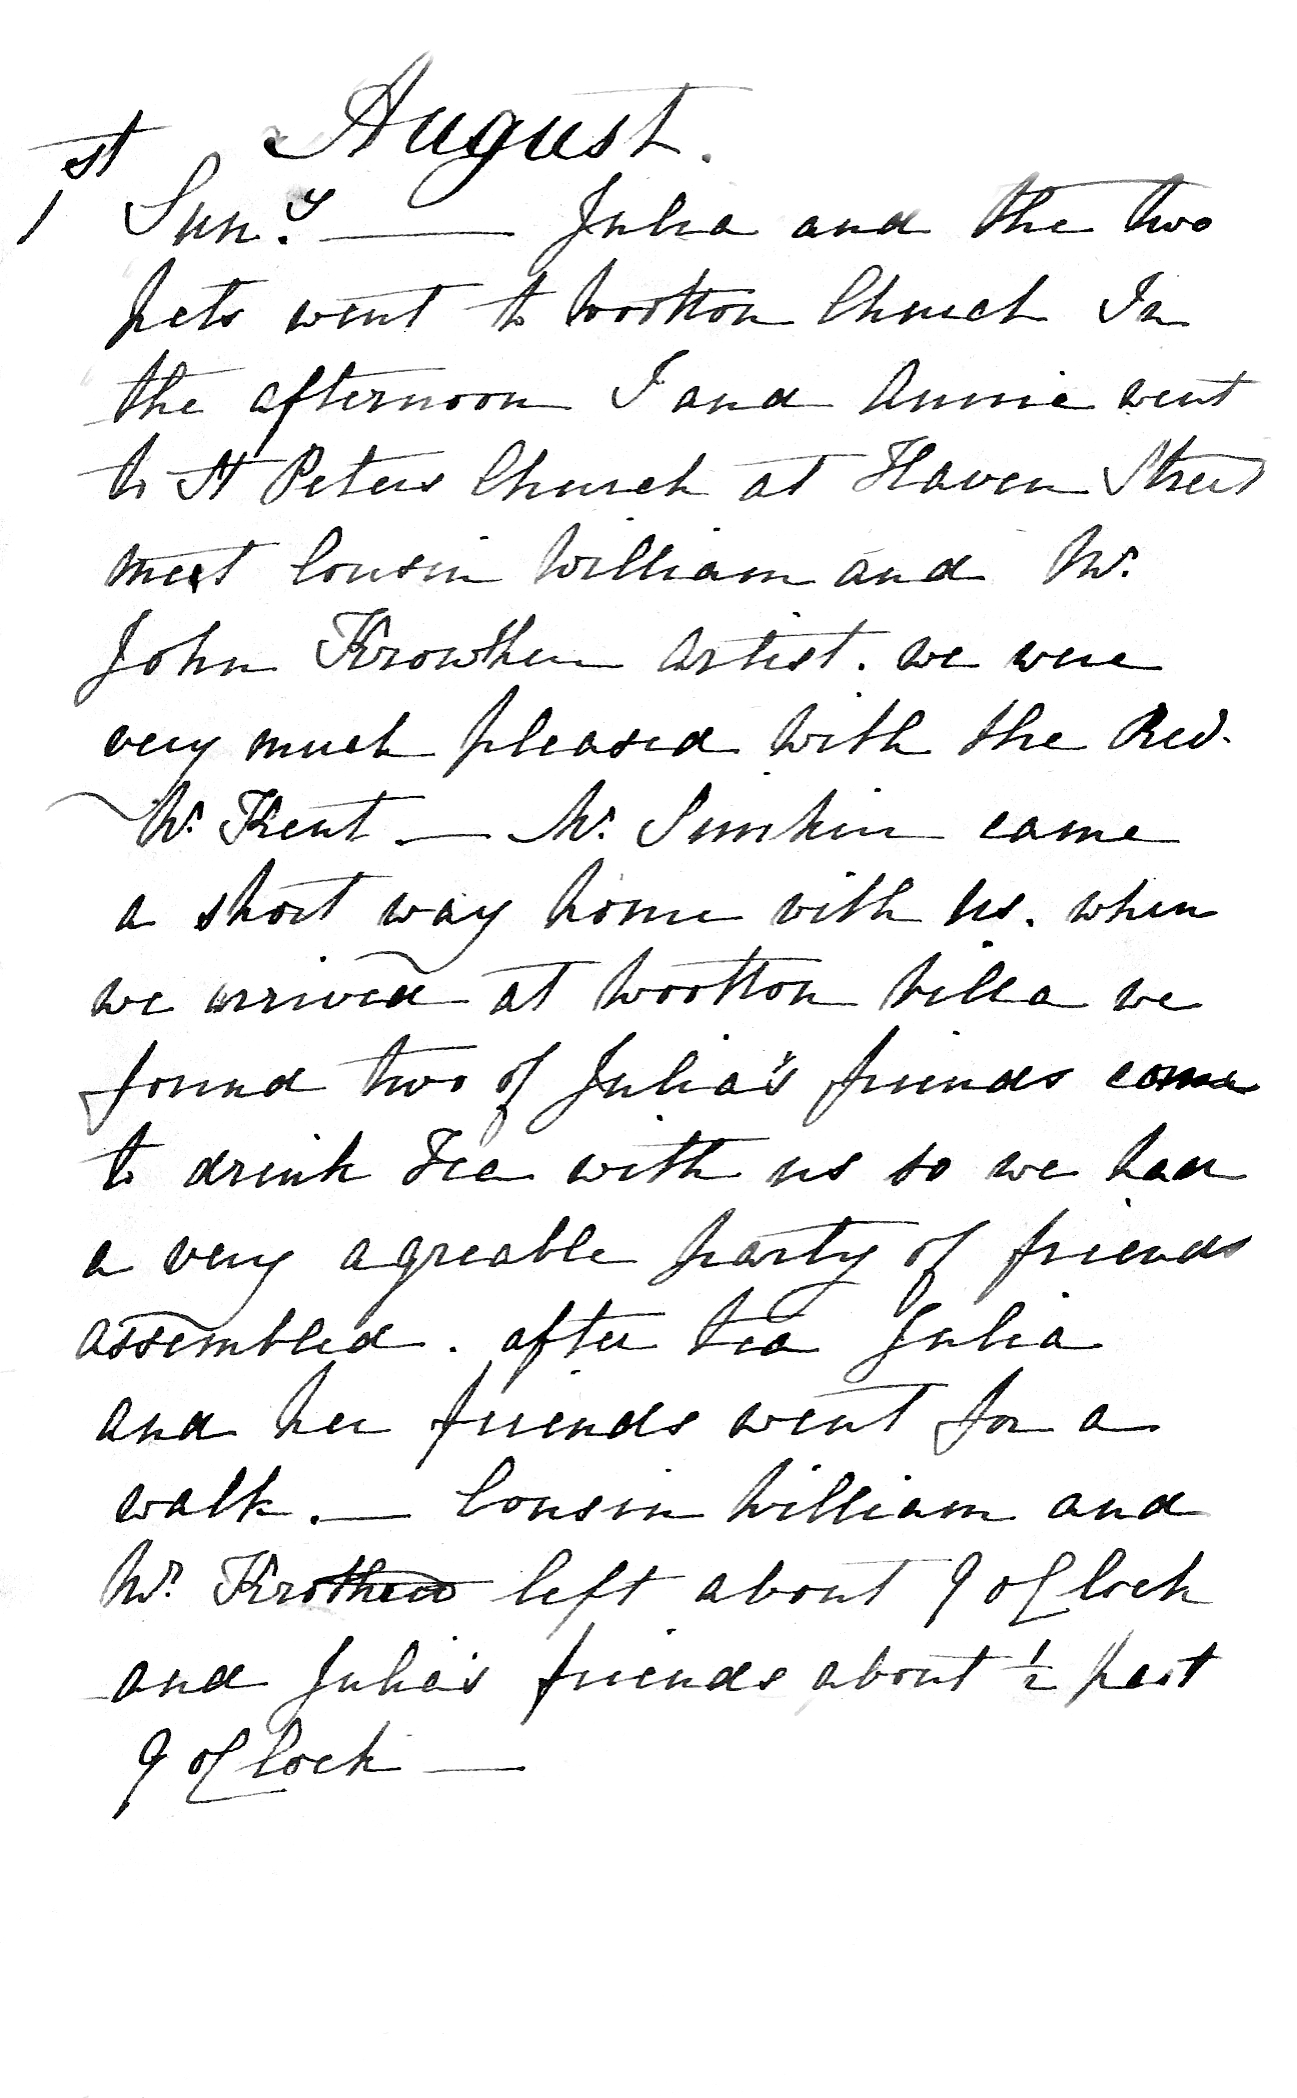 August.
1st Suny. — Julia and the two
pets went to Wootton Church In
the afternoon I and Annie went
to St Peters Church at Haven Street
meet Cousin William and Mr.
John Krowther artist. we were
very much pleased with the Revd.
Mr. Kent — Mr. Simkin came
a short way home with us. when
we arrived at Wootton Villa we
found two of Julia's friends come
to drink Tea with us so we had
a very agreable party of friends
assembled. after tea Julia
and her friends went for a
walk. — Cousin William and
Mr. left about 9 oClock
and Julia's friends about ½ past
9 oClock —